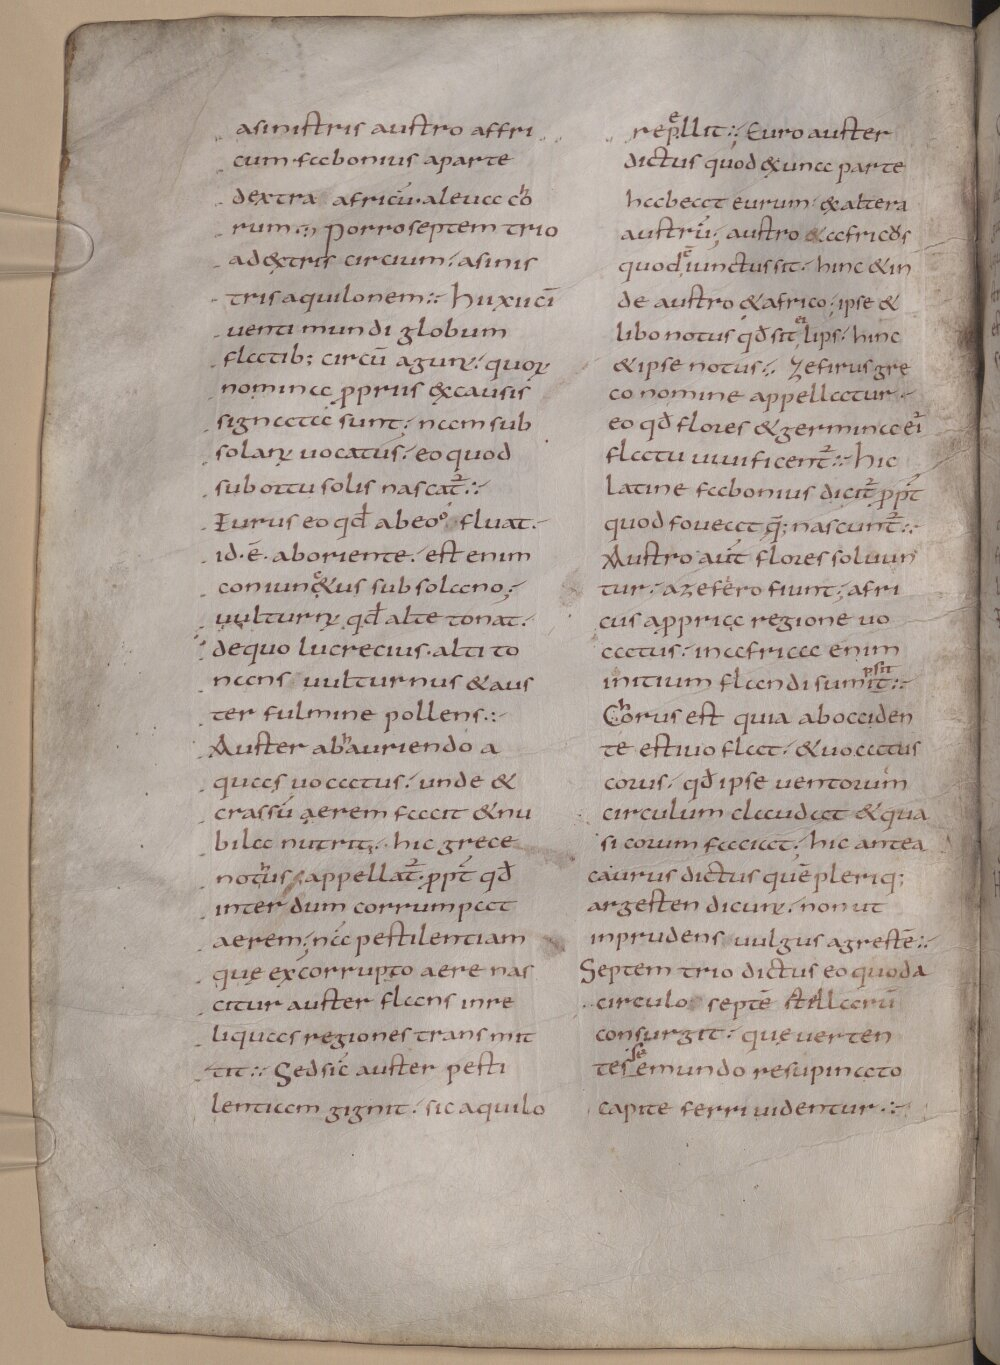 asinistris austro affri
cum fabonius aparte
dextra africū aleua cħo
rum ⁖ Porro septem trio
adextris circium asinis
tris aquilonem ⁖ hii xii ci
uenti mundi globum
flatib; circū agunt quoꝝ
nomina ꝓpriis & causis
signata sunt nam sub
solanꝰ uocatus eo quod
sub ortu solis nascat̄ ⁖
Eurus eo qđ abeo fluat
id·ē· aboriente est enim
coniunctus subsolano;
uulturnꝰ qđ alte tonat
dequo lucrecius·alti to
nans uulturnus & aus
ter fulmine pollens ⁖
Auster abhauriendo a
quas uocatus unde &
crassū aerem facit & nu
bila nutrit hic grece
nothus appellat̄ ꝓpt̄ qđ
inter dum corrumpat
aerem nā pestilentiam
quę ex corrupto aere nas
citur auster flans inre
liquas regiones transmit
tit ⁖ Sed sic auster pesti
lentiam gignit sic aquilo
repellit ⁖ Euro auster
dictus quod exuna parte
habeat eurum & altera
austrū; austro & africꝰs
quodsē iunctus sit hinc & in
de austro & africo ipse &
libo notus qđ sit ei lips hinc
& ipse notus ⁖ Zefirus gre
co nomine appellatur
eo qđ flores & germina eī
flatu uiuificent̄ ⁖ hic
latine fabonius dicit̄ ꝓpt̄
quod foueat q̄; nascunt̄ ⁖
Austro aut̄ flores soluun
tur azefero fiunt; afri
cus apprica regione uo
catus inafrica enim
initium flandi sumpsit ⁖
Chorus est quia abocciden
te estiuo flat & uocatus
corus qđ ipse uentorum
circulum claudat & qua
si corum faciat hic antea
caurus dictus quē pleriq;
argesten dicunt non ut
inprudens uulgus agrestē ⁖
Septem trio dictus eo quod a
circulo septē stellarū
consurgit que uerten
tes se emundo resupinato
capite ferri uidentur ⁖